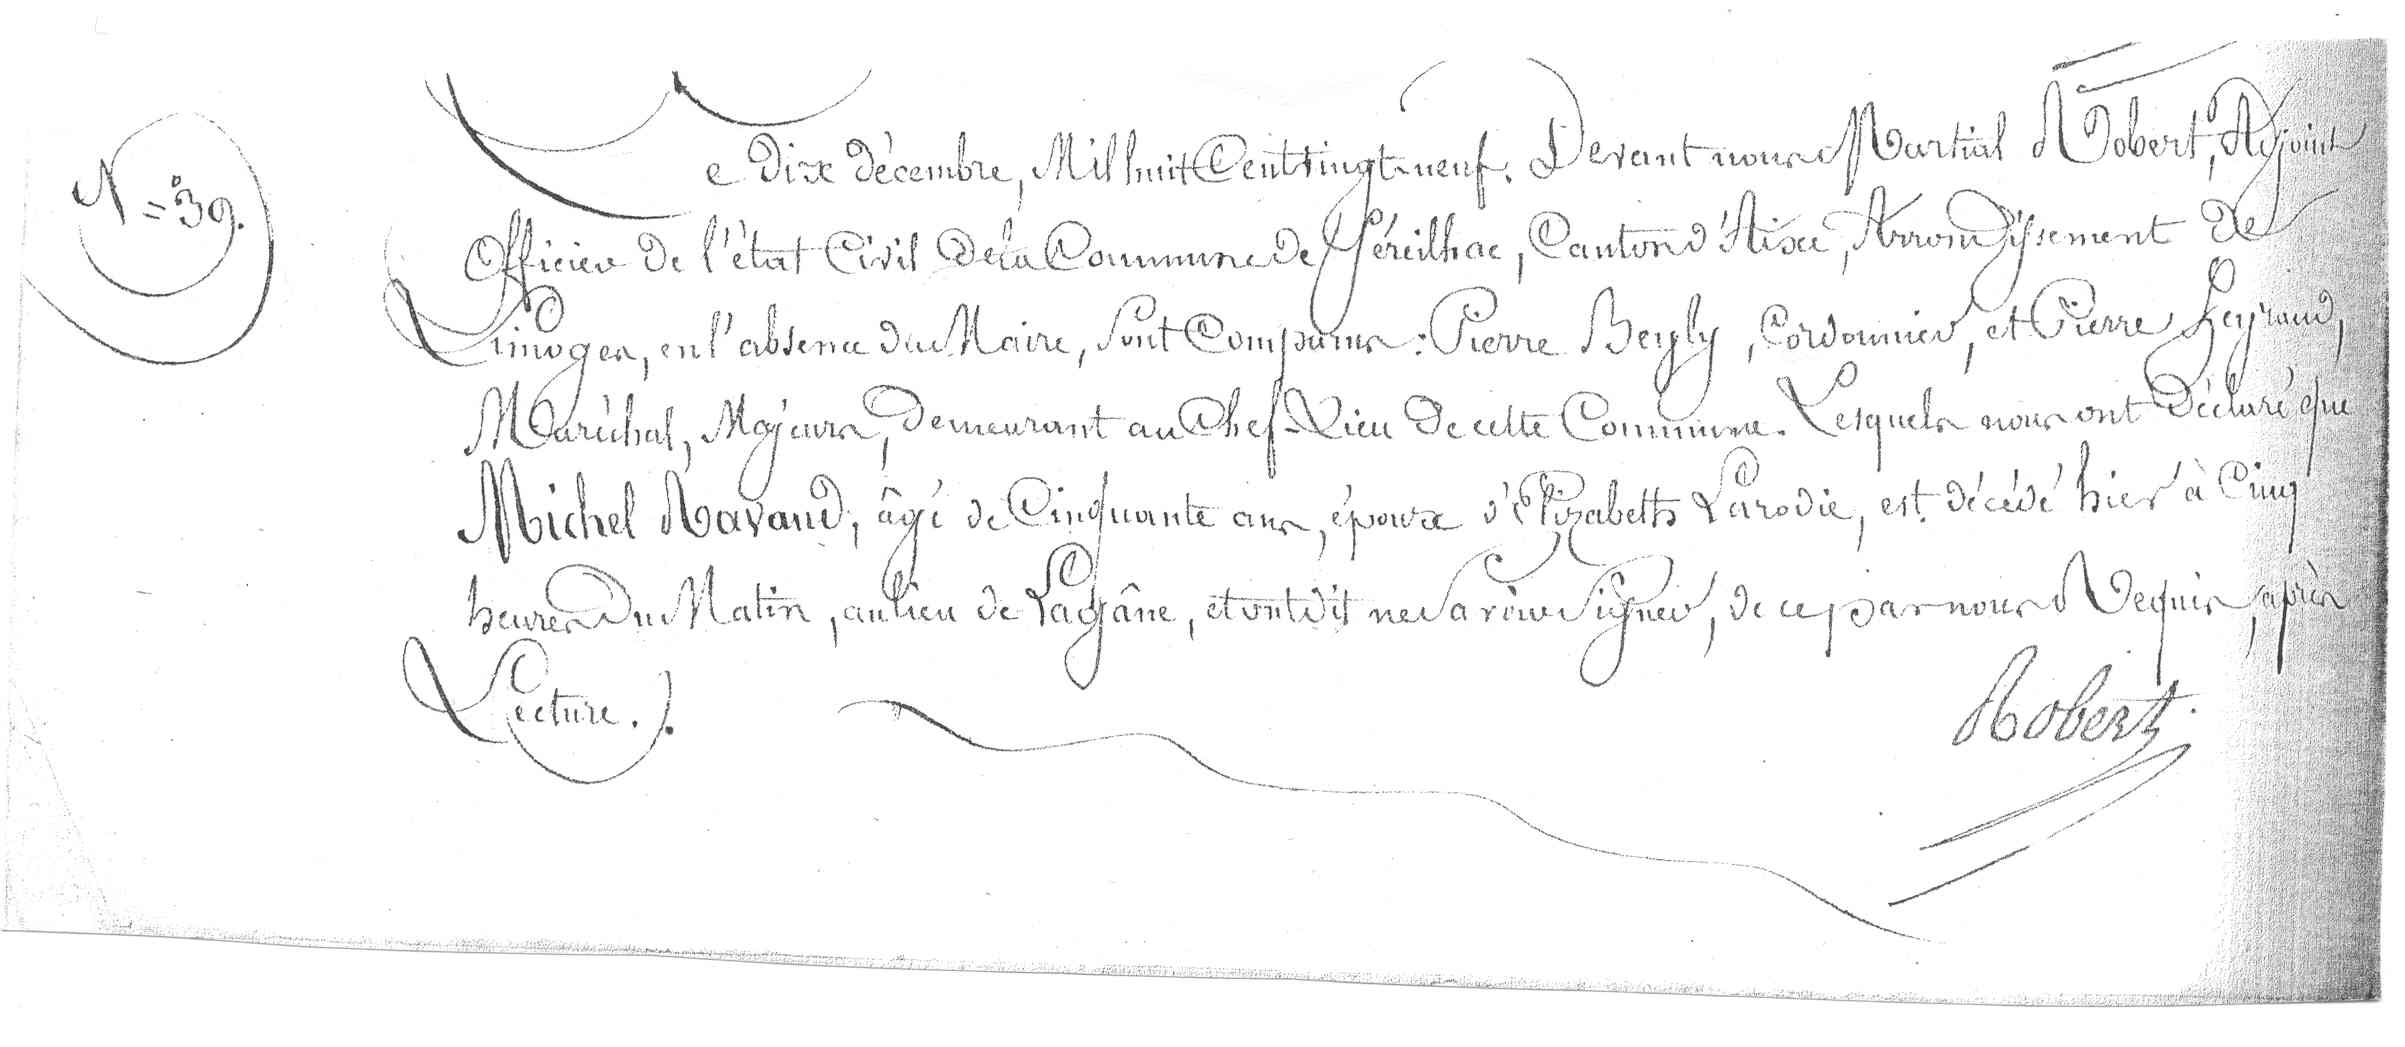 N=°39.
Le Dix décembre, Mil huit Cent vingt-neuf. Devant nous Martial Robert, Adjoint
Officier de l'état Civil de la Commune de Séreilhac, Canton d'Aixe, Arrondissement de
Limoges, en l'absence du Maire, Sont Comparus: Pierre Beyly, Cordonnier, et Pierre Heyraud,
Maréchal, Majeurs, Demeurant au Chef-Lieu de cette Commune. Lesquels nous ont Déclaré que
Michel Ravaud, âgé de Cinquante ans, époux d'Elizabeth Larodie, est décédé hier à Cinq
heures Du Matin, au lieu de Lagâne, et ont dit ne Savoir Signer, de ce par nous Requis, après
Lecture./.
Robert